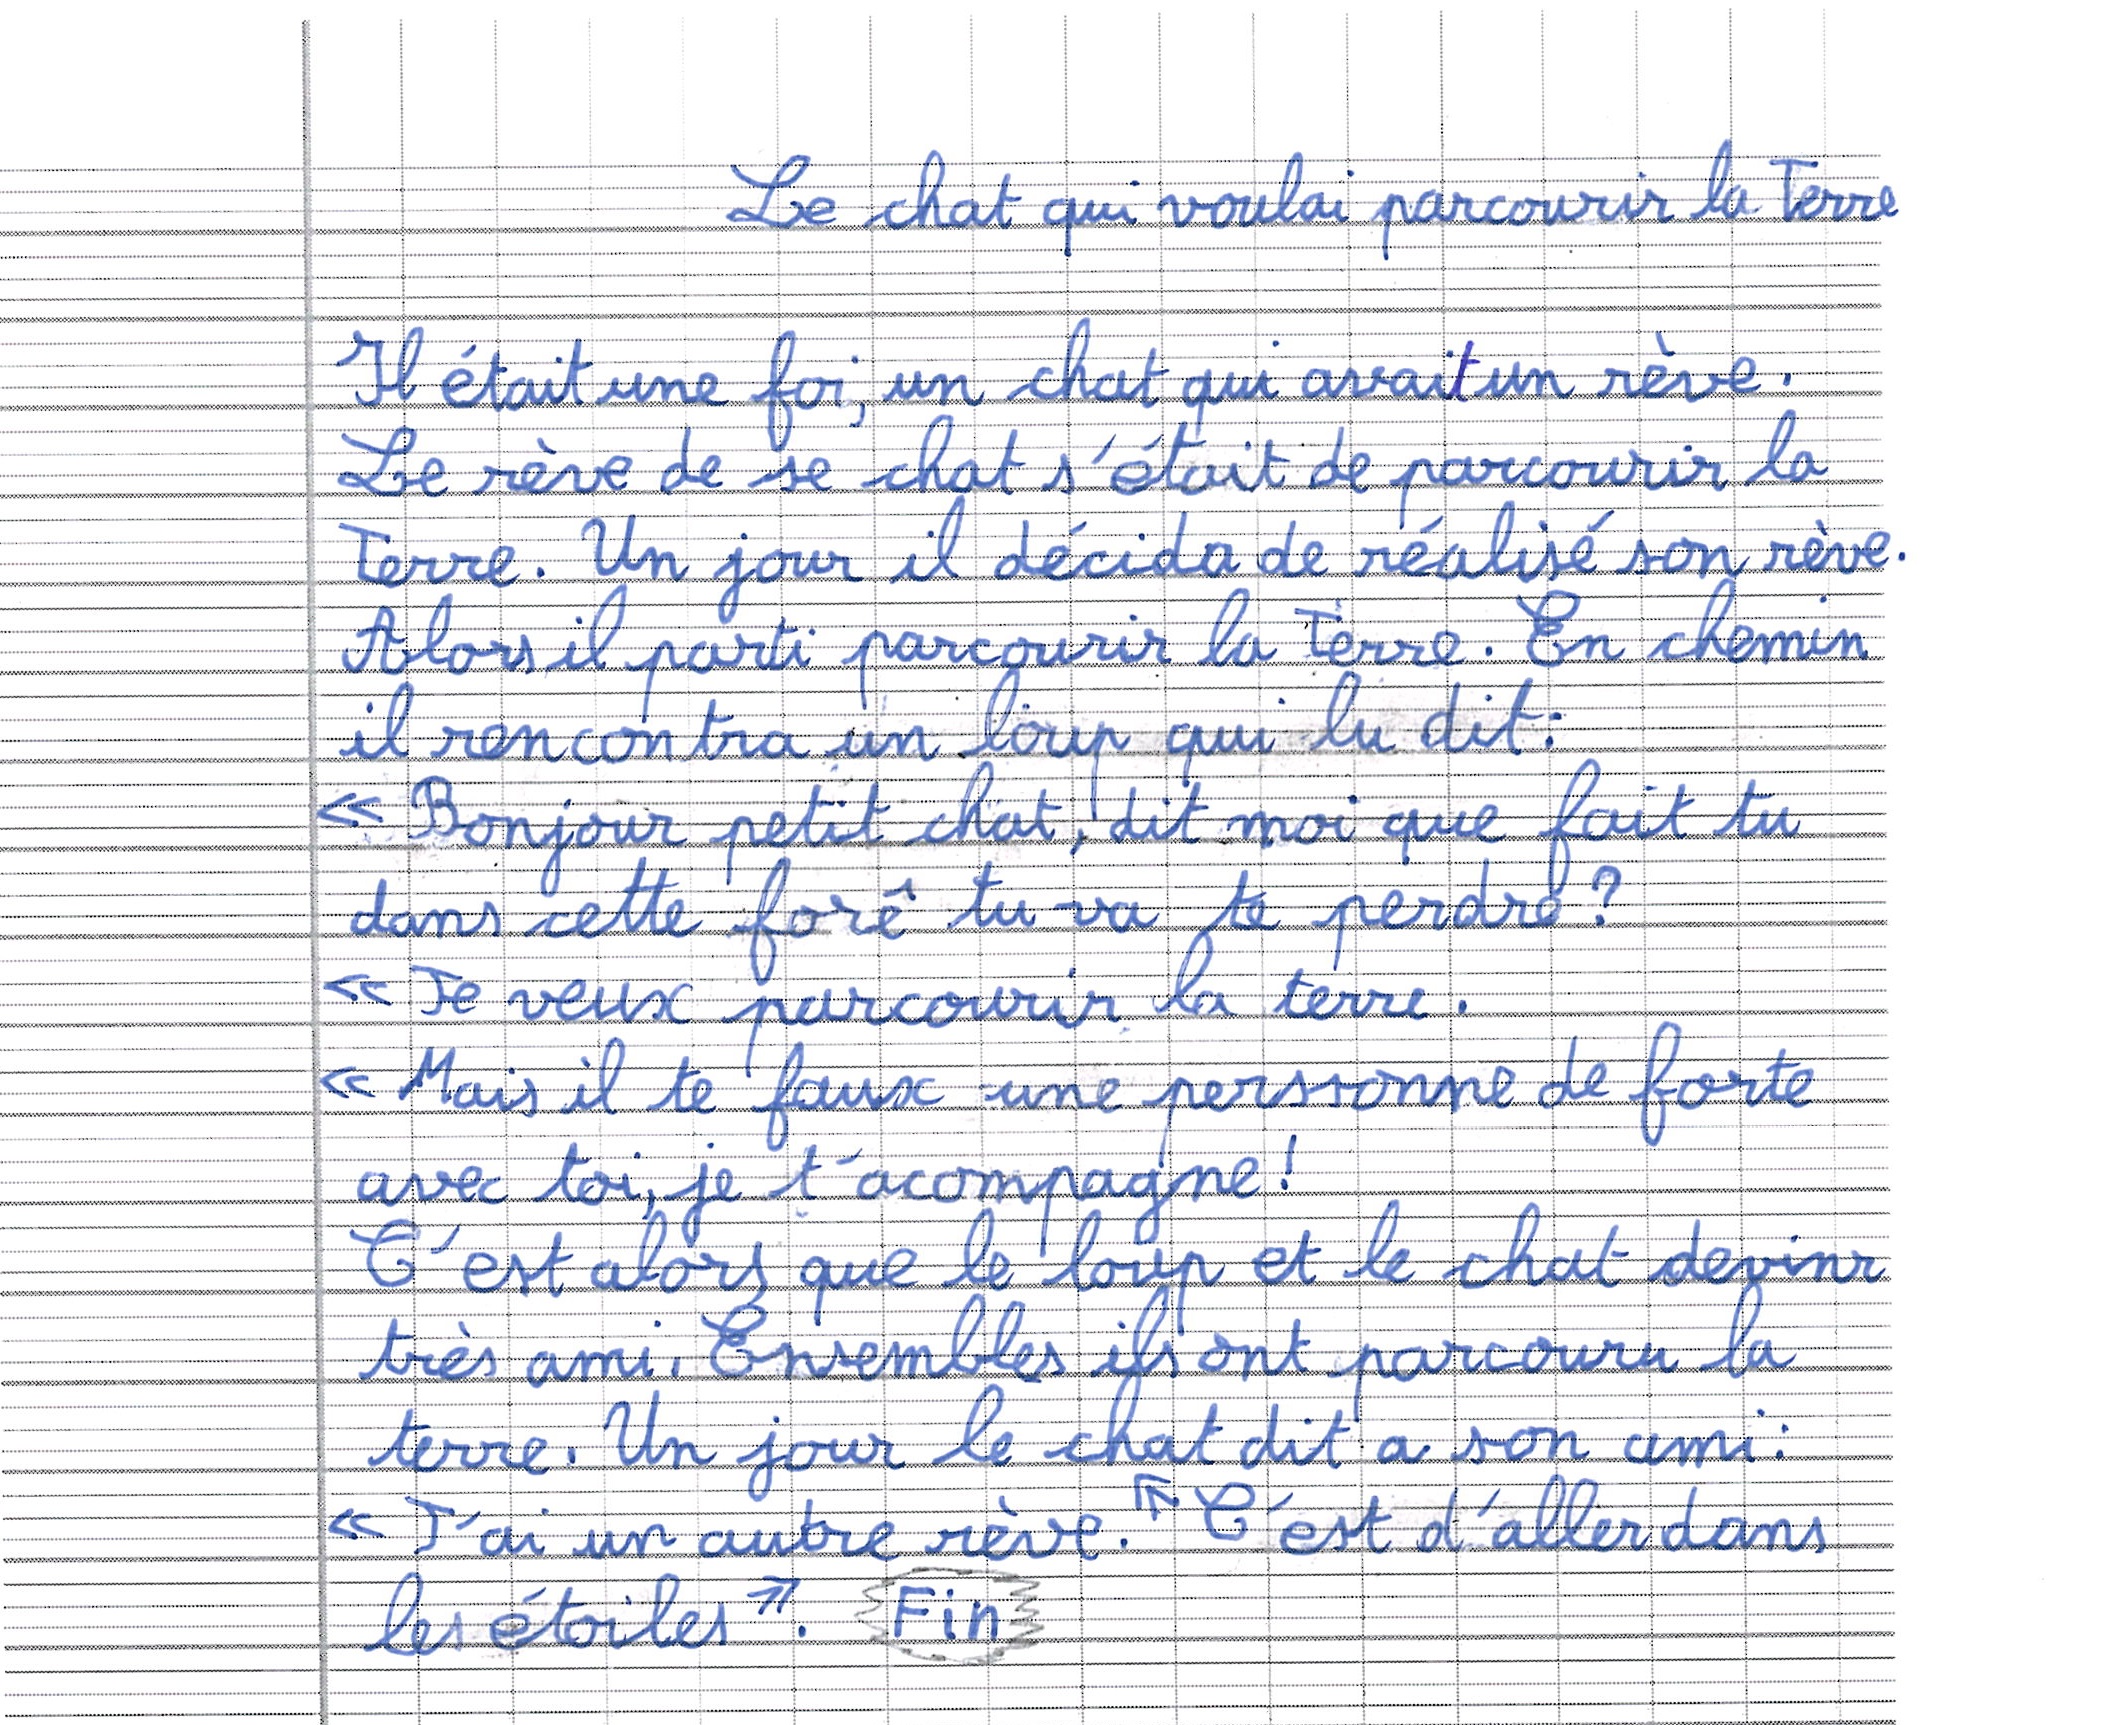 Le chat qui voulai parcourir la Terre
Il était une foi, un chat qui avait un rève.
Le rève de se chat s'était de parcourir la
Terre. Un jour il décida de réalisé son rève.
Alors il parti parcourir la Terre. En chemin
il rencontra un loup qui lu dit:
« Bonjour petit chat, dit moi que fait tu
dans cette forê tu va te perdre ?
« Je veux parcourir la terre.
« Mais il te faux une personne de forte
avec toi, je t'acompagne!
C'est alors que le loup et le chat devinr
très ami. Ensembles ils ont parcouru la
terre. Un jour le chat dit a son ami:
« J'ai un autre rève. C'est d'aller dans
les étoiles ». Fin